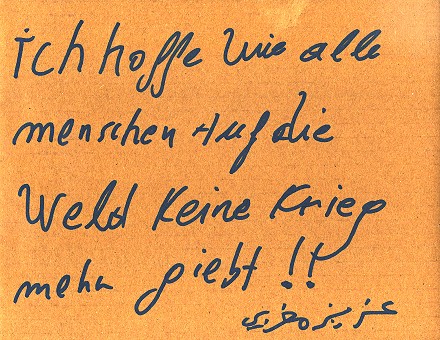 ich hoffe wie alle
menschen auf die
Weld keine Krieg
mehr giebt !!